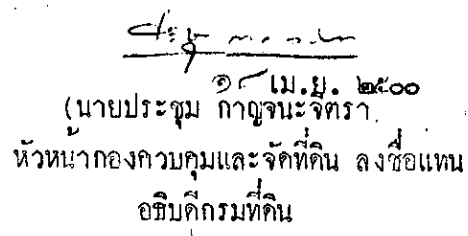 ๑๘ เม.ย. ๒๕๐๐
(นายประชุม กาญจนะจิตรา
หัวหน้ากองควบคุมและจัดที่ดิน ลงชื่อแทน
อธิบดีกรมที่ดิน